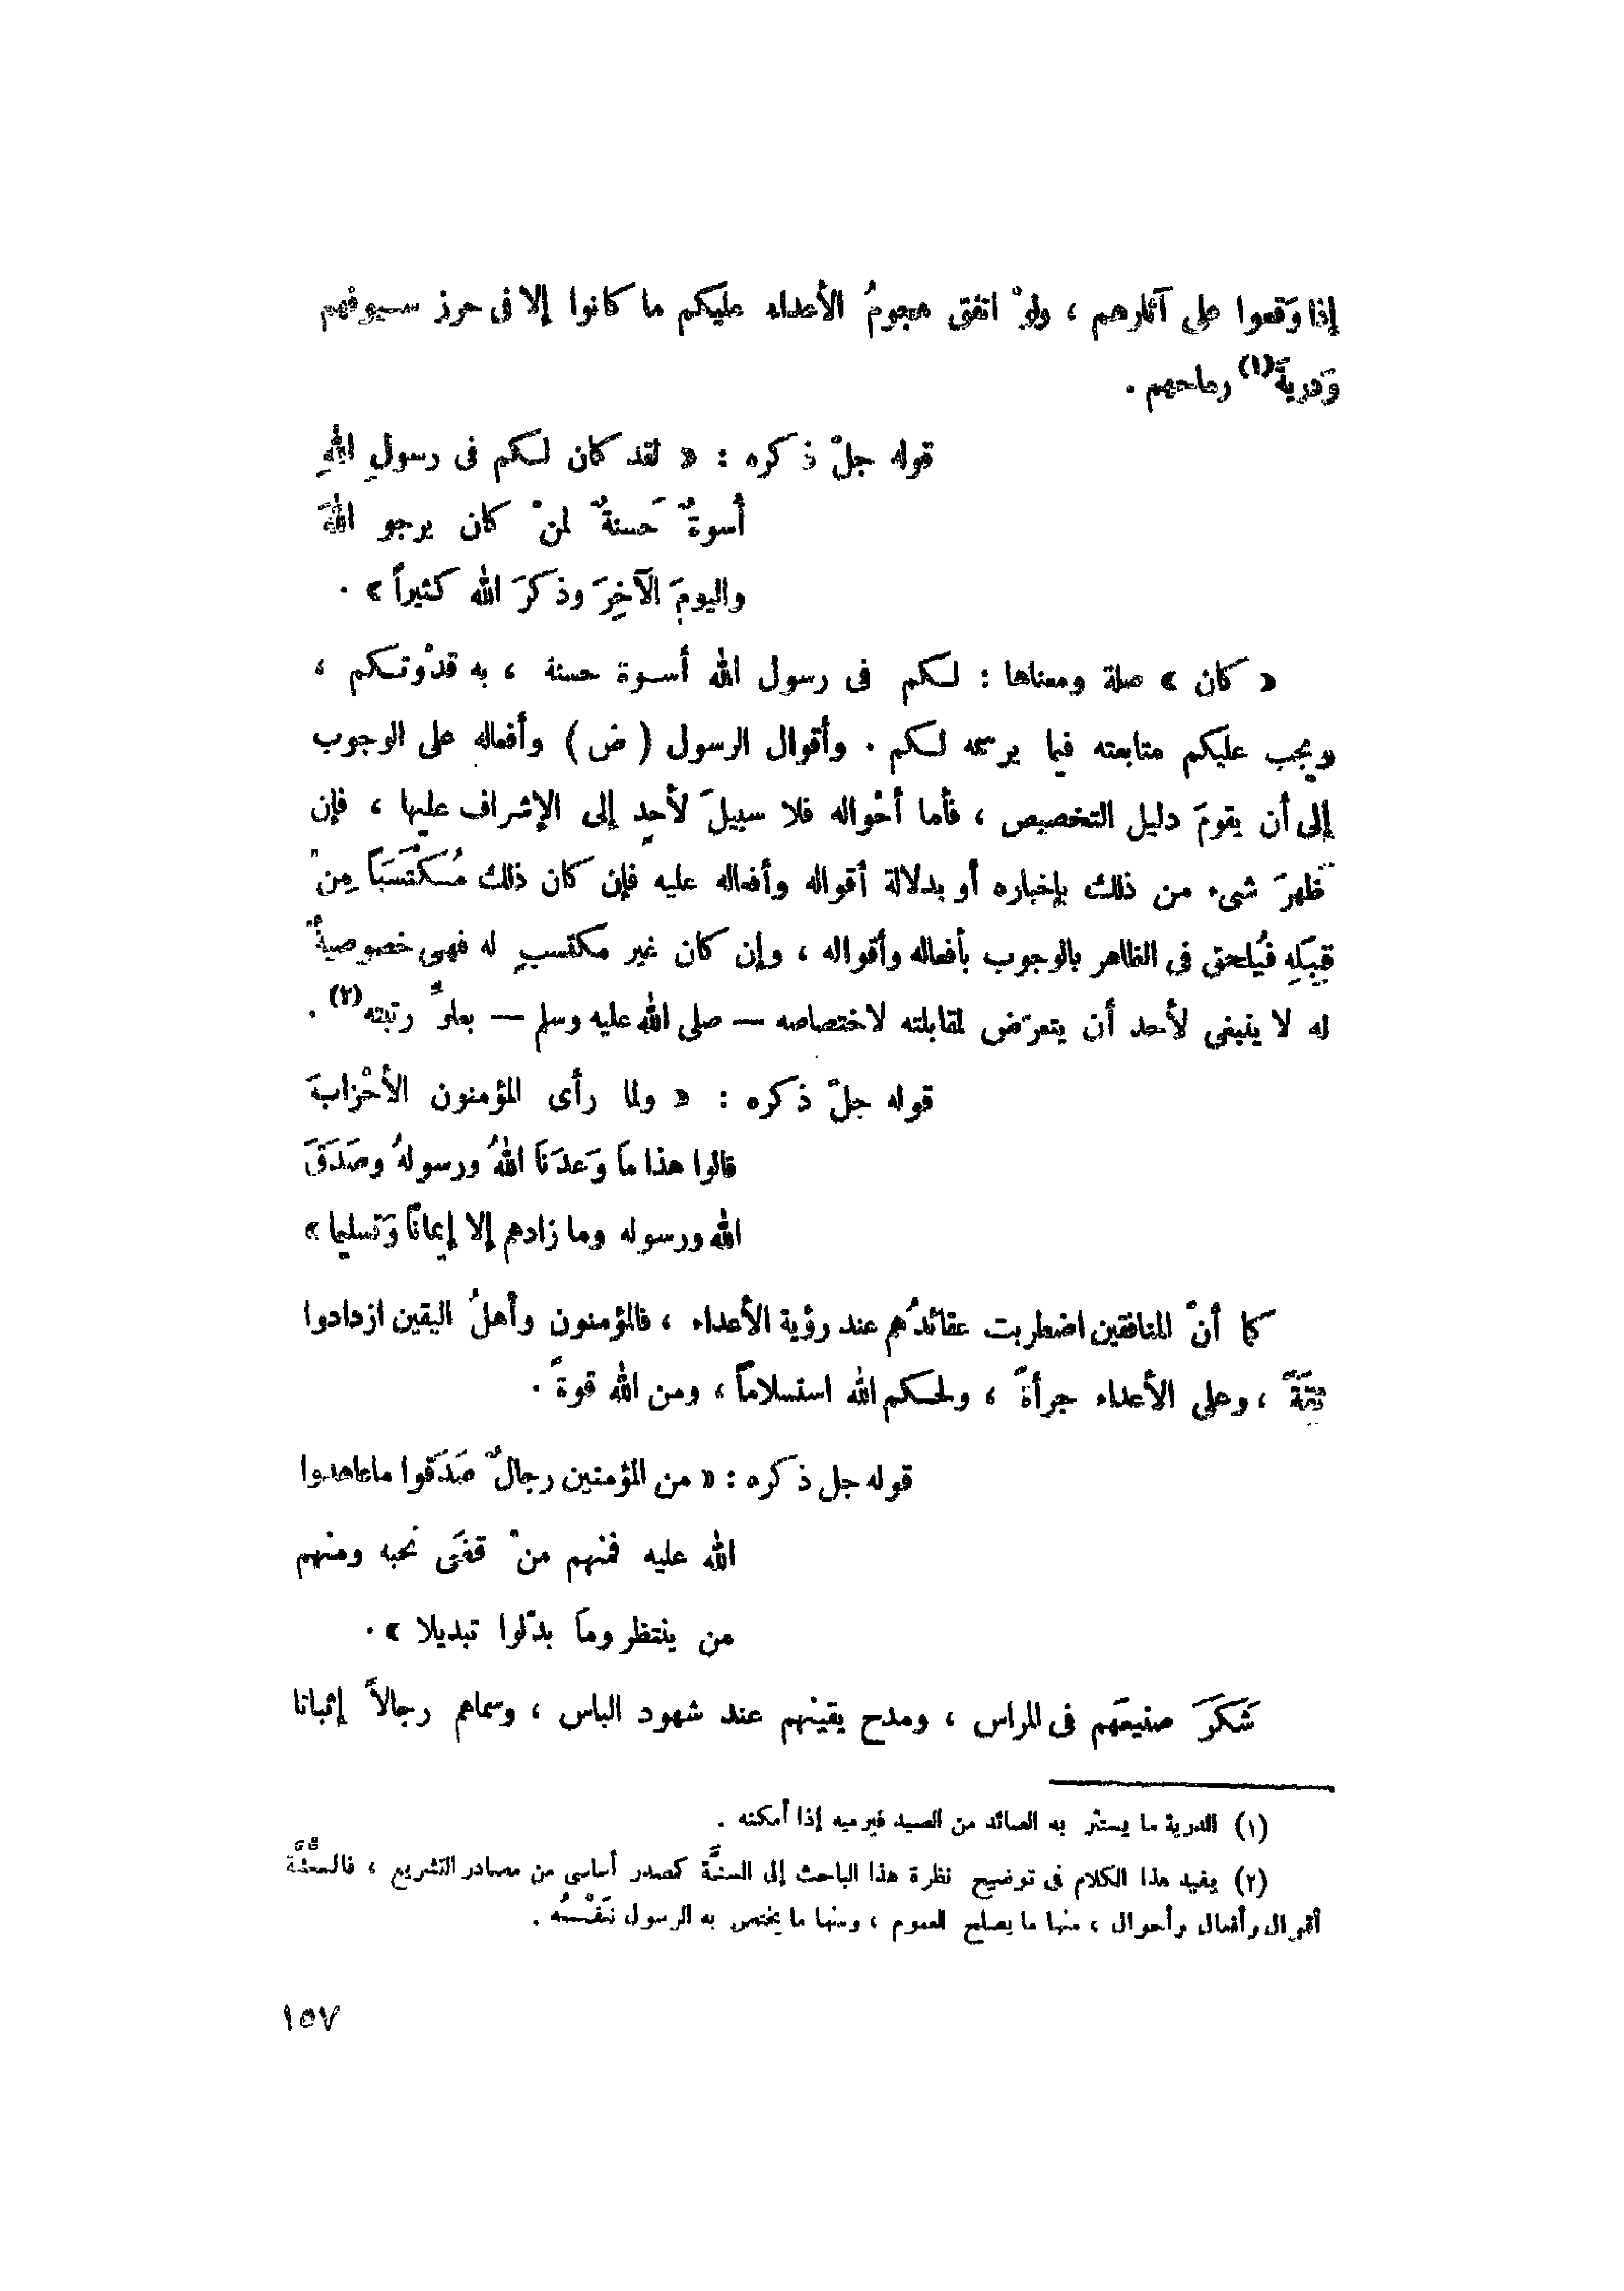 إذا وَقعوا على آثارهم ، ولوْ اتفق هجومُ الأعداء عليكم ما كانوا إلا فى حرز سيوفهم
وَدرية(١) رماحهم .
قوله جلّ ذكره : « لقد كان لكم فى رسولِ اللهِ
أسوةٌ حَسنةٌ لمنْ كان يرجو اللهَ
واليومَ الآخِرَ وذكرَ الله كثيراً » .
« كان » صلة ومعناها : لكم فى رسول الله أسوة حسنة ، به قدْوتكم ،
ويجب عليكم متابعته فيما يرسمه لكم . وأقوال الرسول ( ض ) وأفعاله على الوجوب
إلى أن يقومَ دليل التخصيص ، فأما أحْواله فلا سبيلَ لأحدٍ إلى الإشراف عليها ، فإن
ظهرَ شىء من ذلك بإخباره أو بدلالة أقواله وأفعاله عليه فإن كان ذلك مُكْتَسَبَاً مِنْ
قِبَلِهِ فيُلحق فى الظاهر بالوجوب بأفعاله وأقواله ، وإن كان غير مكتسبٍ له فهى خصوصيةٌ
له لا ينبغى لأحد أن يتعرّض لمقابلته لاختصاصه — صلى الله عليه وسلم — بعلوِّ رتبته(٢) .
قوله جلّ ذكره : « ولما رأى المؤمنون الأحْزابَ
قالوا هذا مَا وَعدَنَا اللهُ ورسولهُ وصَدَقَ
الله ورسوله وما زادهم إلا إيمانًا وَتسليما »
كما أنّ المنافقين اضطربت عقائدُهم عند رؤية الأعداء ، فالمؤمنون وأهلُ اليقين ازدادوا
ثِقَةً ، وعلى الأعداء جرأةً ، ولحكم الله استسلاماً ، ومن الله قوةً .
قوله جل ذكره : « من المؤمنين رجالٌ صَدَقوا ماعاهدوا
الله عليه فمنهم منْ قضَى نحبه ومنهم
من ينتظر ومَا بدّلوا تبديلا » .
شَكَرَ صنيعَهم فى المراس ، ومدح يقينهم عند شهود الباس ، وسماهم رجالاً إثباتا
(١) الدرية ما يستتر به الصائد من الصيد فيرميه إذا أمكنه .
(٢) يفيد هذا الكلام فى توضيح نظرة هذا الباحث إلى السنَّة كمصدر أساسى من مصادر التشريع ، فالسُّنَّة
أقوال وأفعال وأحوال ، منها ما يصلح للعموم ، ومنها ما يختص به الرسول نَفْسُه .
١٥٧